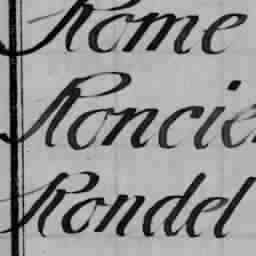 Rome
Roncie
Rondel